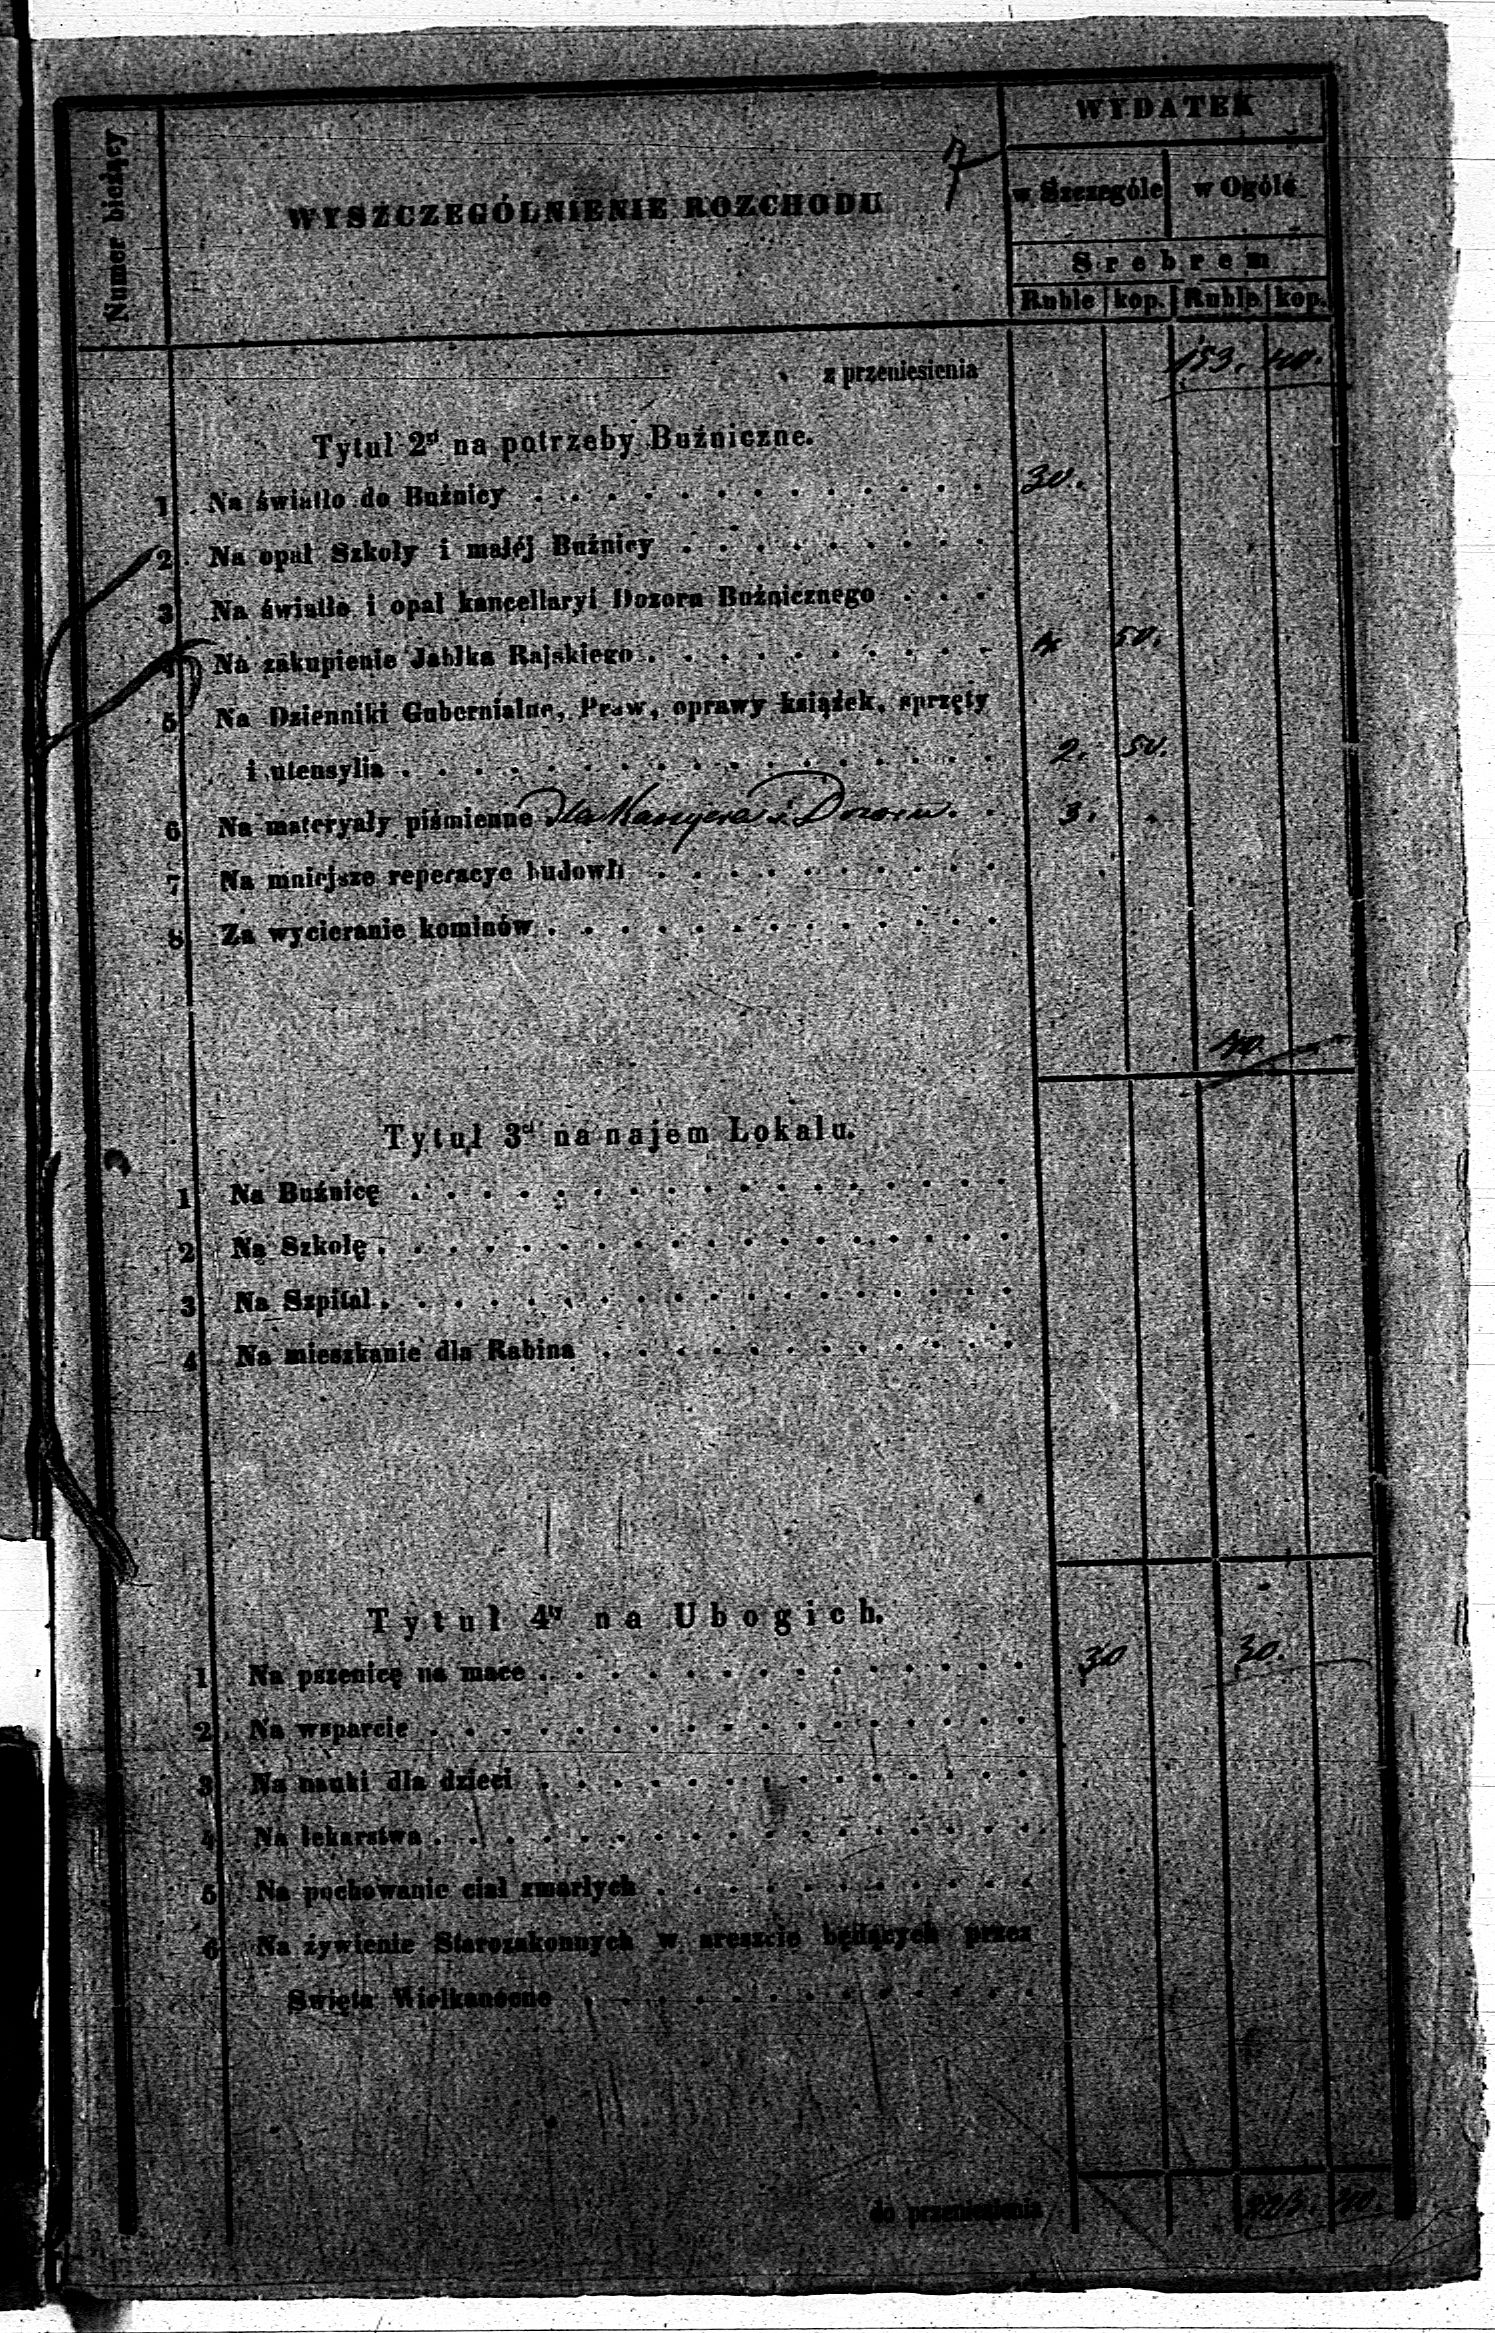 7
WYDATEK
Numer bieżący
WYSZCZEGÓLNIENIE ROZCHODU
w Szczególe w Ogóle
Srebrem
Ruble kop. Ruble kop.
z przeniesienia 153. 40.
Tytuł 2gi na potrzeby Bużniczne.
1 Na światło do Bużnicy 30.
2 Na opał Szkoły i małéj Bużnicy
3 Na światło i opał kancellaryi Dozoru Bużnicznego
4 Na zakupienie Jabłka Rajskiego 4 50.
5 Na Dzienniki Gubernialne, Praw, oprawy książek, sprzęty
i utensylia 2. 50.
6 Na materyały piśmienne dla Kassyera i Dozoru. 3.
7 Na mniejsze reperacye budowli
8 Za wycieranie kominów
40
Tytuł 3ci na najem Lokalu.
1 Na Bużnicę
2 Na Szkołę
3 Na Szpital
4 Na mieszkanie dla Rabina
Tytuł 4ty na Ubogich.
1 Na pszenicę na mace 30 30.
2 Na wsparcie
3 Na nauki dla dzieci
4 Na lekarstwa
5 Na pochowanie ciał zmarłych
6 Na żywienie Starozakonnych w areszcie będących przez
Swięta Wielkanocne
do przeniesienia 223. 40.